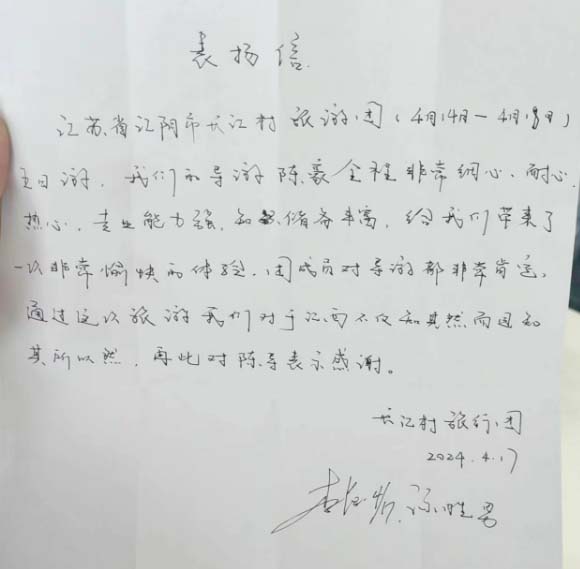 表扬信
江苏省江阴市长江村旅游团(4月14日-4月18日)
五日游,我们的导游陈豪全程非常细心、耐心、
热心,专业能力强,知识储备丰富,给我们带来了
一次非常愉快的体验,团成员对导游都非常肯定。
通过这次旅游我们对于江西不仅知其然而且知
其所以然,再此对陈导表示感谢。
长江村旅行团
2024.4.17